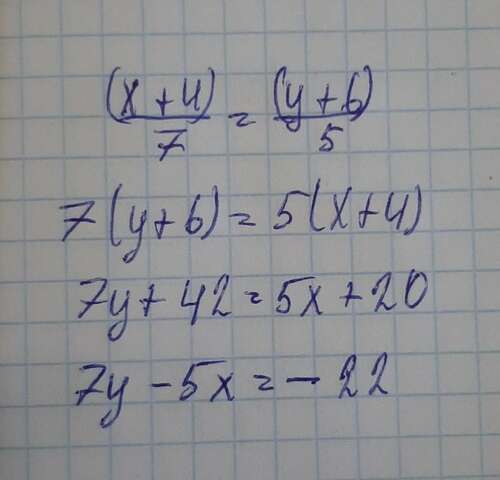 (x+4)/7 = (y+6)/5
7(y+6)=5(x+4)
7y+42=5x+20
7y-5x=-22